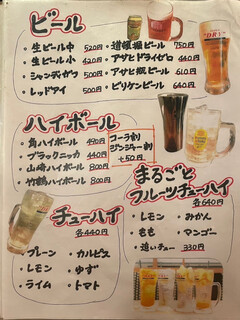 ビール
・生ビール中 520円
・生ビール小 420円
・シャンディガフ 500円
・レッドアイ 500円
・道頓堀ビール 750円
・アサヒドライゼロ 440円
・アサヒ瓶ビール 610円
・ビリケンビール 660円
ハイボール
・角ハイボール 490円
・ブラックニッカ 440円
・山崎ハイボール 800円
・竹鶴ハイボール 800円
コーラ割
ジンジャー割
+50円
チューハイ
各440円
・プレーン ・カルピス
・レモン ・ゆず
・ライム ・トマト
まるごと
フルーツチューハイ
各640円
・レモン ・みかん
・もも ・マンゴー
・追いチュー 330円